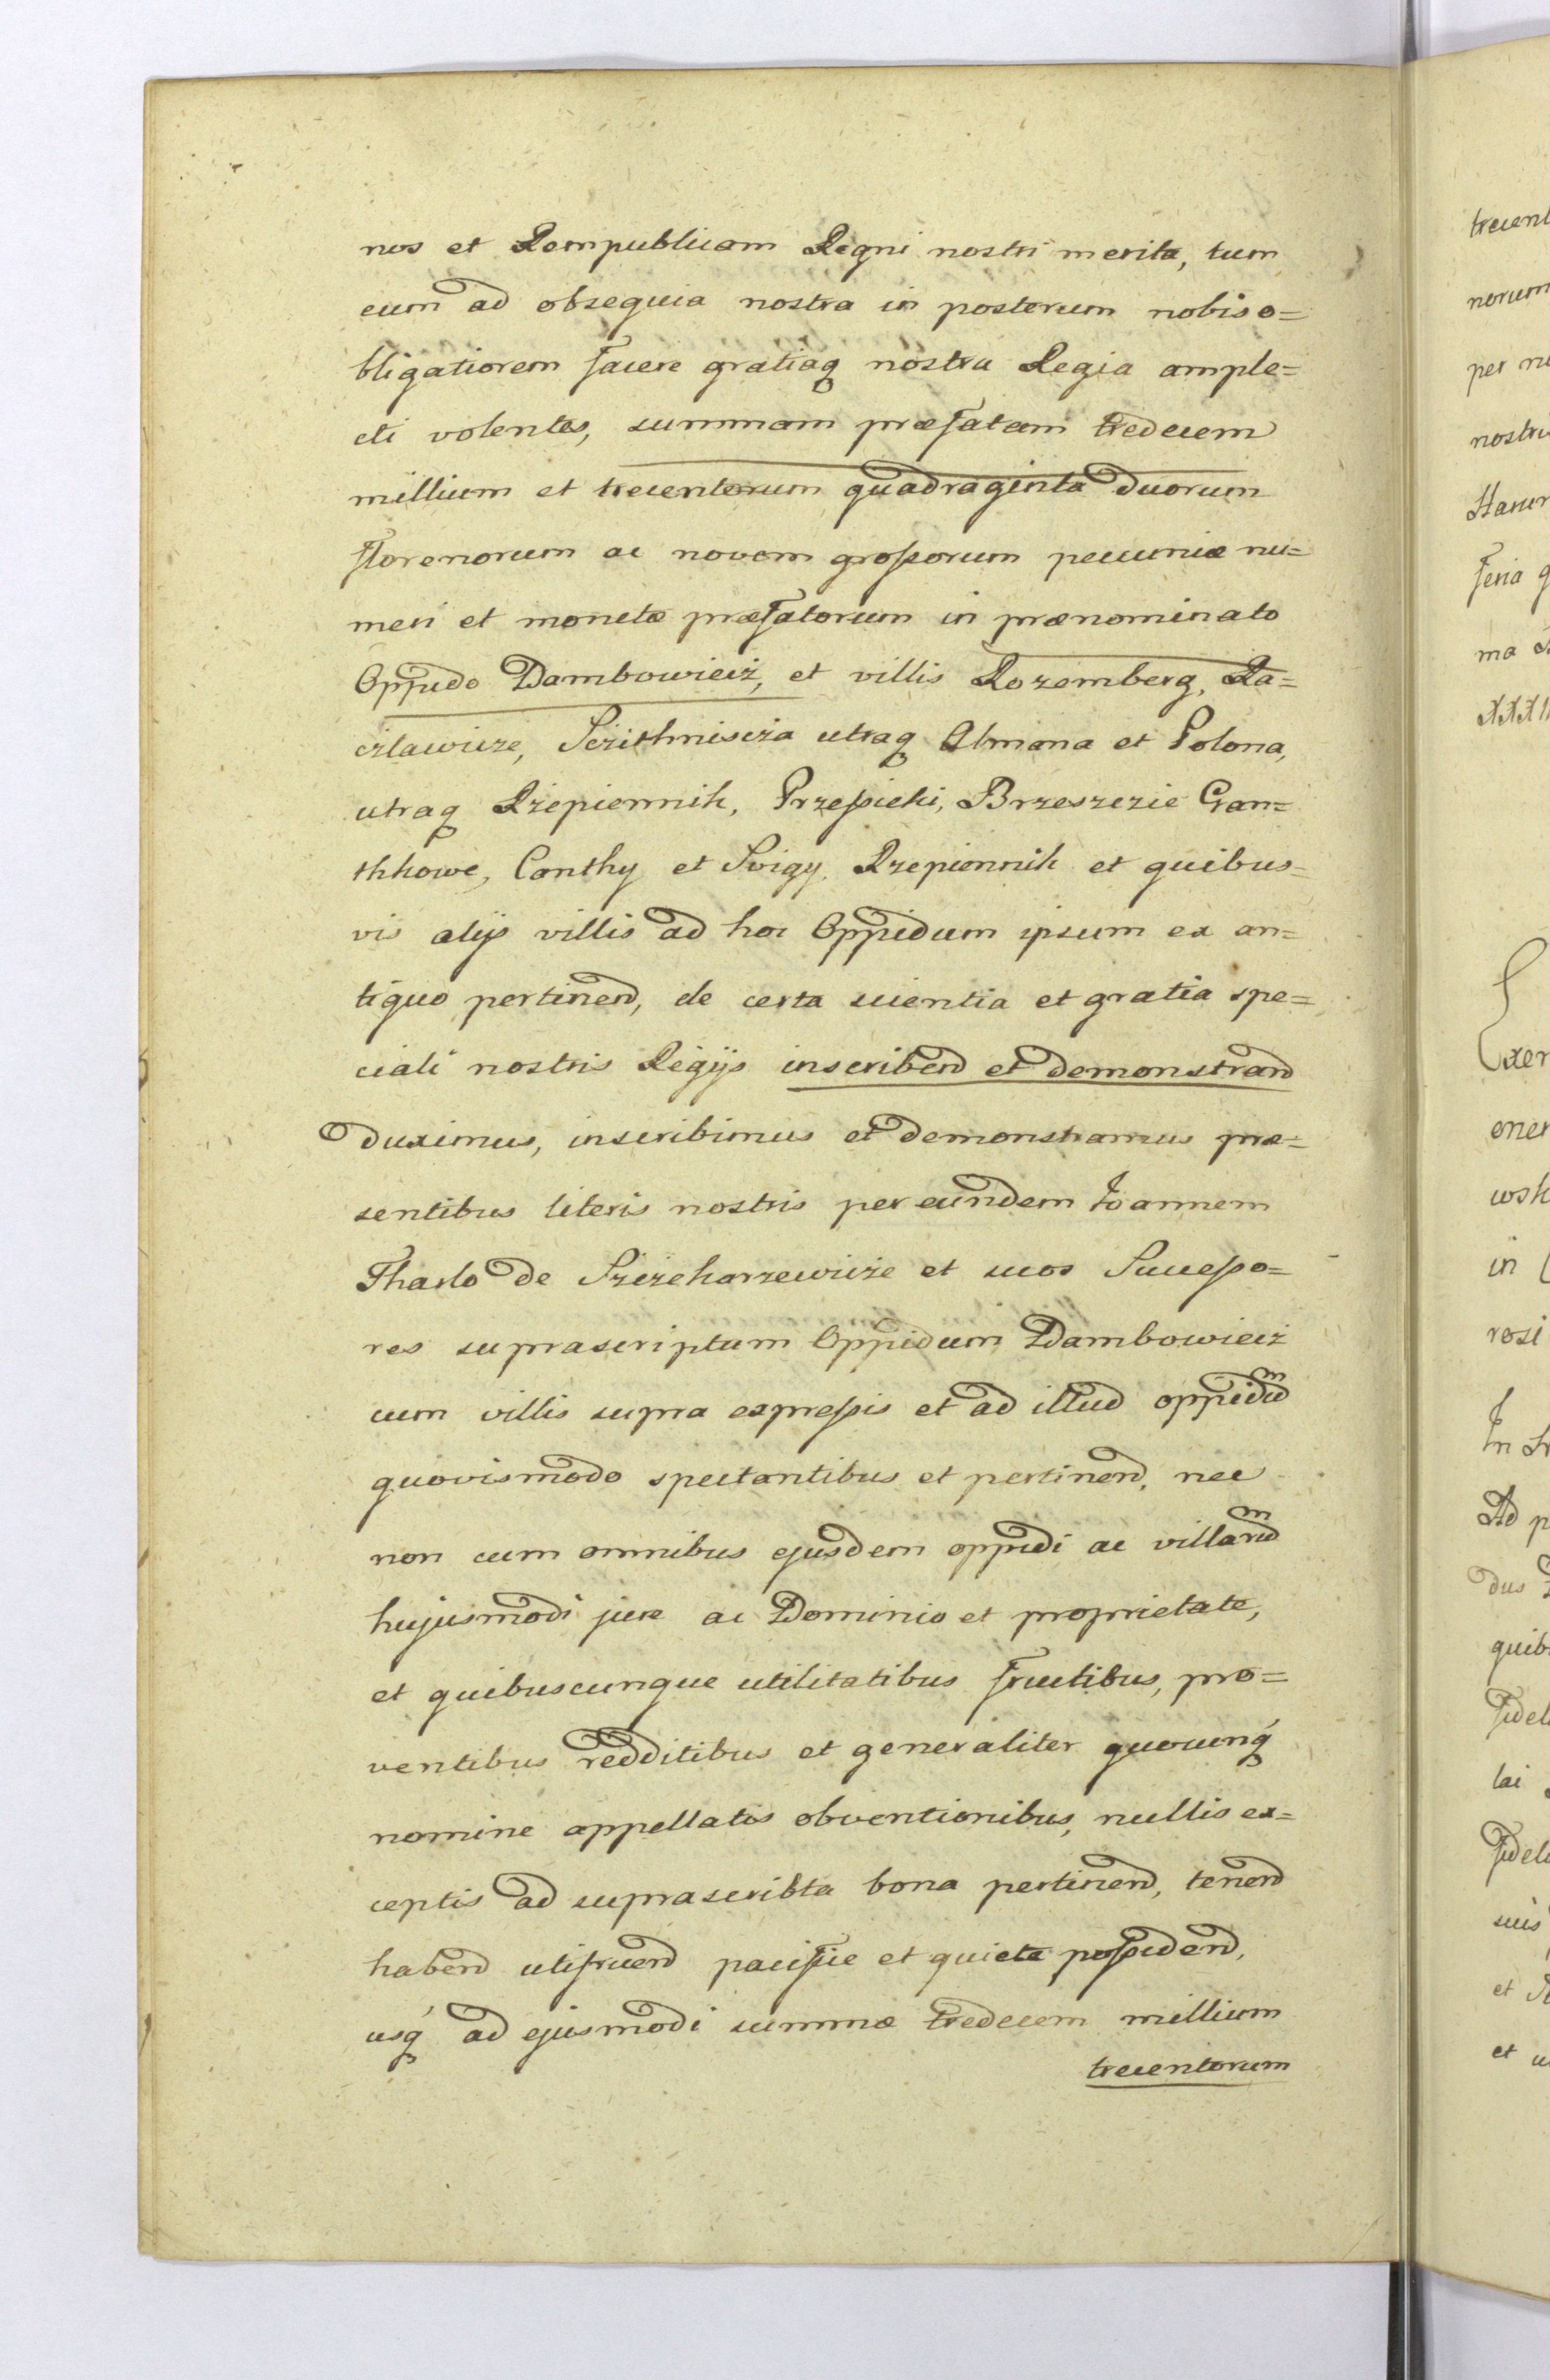 nos et Rempublicam Regni nostri merita, tum
eum ad obsequia nostra in posterum nobis o=
bligatiorem facere gratiaq nostra Regia ample=
cti volentes, summam præfatam tredecem
millium et trecentorum quadraginta duorum
florenorum ac novem grossorum pecuniæ nu=
meri et monetæ præfatorum in prænominato
Oppido Dambowiecz, et villis Rozemberg, Ra=
czlawicze, Sczithniscza utraq Almana et Polona,
utraq Rzepiennik, Przesieki, Brzeszczie Gran=
thkowe, Conthy et Svigy, Rzepiennik et quibus=
vis alijs villis ad hoc Oppidum ipsum ex an=
tiquo pertinend, de certa scientia et gratia spe=
ciali nostris Regijs inscribend et demonstrand
duximus, inscribimus et demonstramus præ=
sentibus literis nostris per eundem Joannem
Tharlo de Szczekarzewicze et suos Successo=
res suprascriptum Oppidum Dambowiecz
cum villis supra expressis et ad illud oppidum
quovismodo spectantibus et pertinend, nec
non cum omnibus ejusdem oppidi ac villarum
hujusmodi jure ac Dominio et proprietate,
et quibuscunque utilitatibus fructibus, pro=
ventibus redditibus et generaliter quocunq
nomine appellatis obventionibus, nullis ex=
ceptis ad suprascribta bona pertinend, tenend
habend utifruend pacifice et quiete possidend,
usq ad ejusmodi summæ tredecem millium
trecentorum
trecent
norum
per n
nostr
feria q
ma
XXXII
Exer
oner
wsk
in
rosi
In
Ad p
dus
quib
fidel
lai
fidel
suis
et
et u